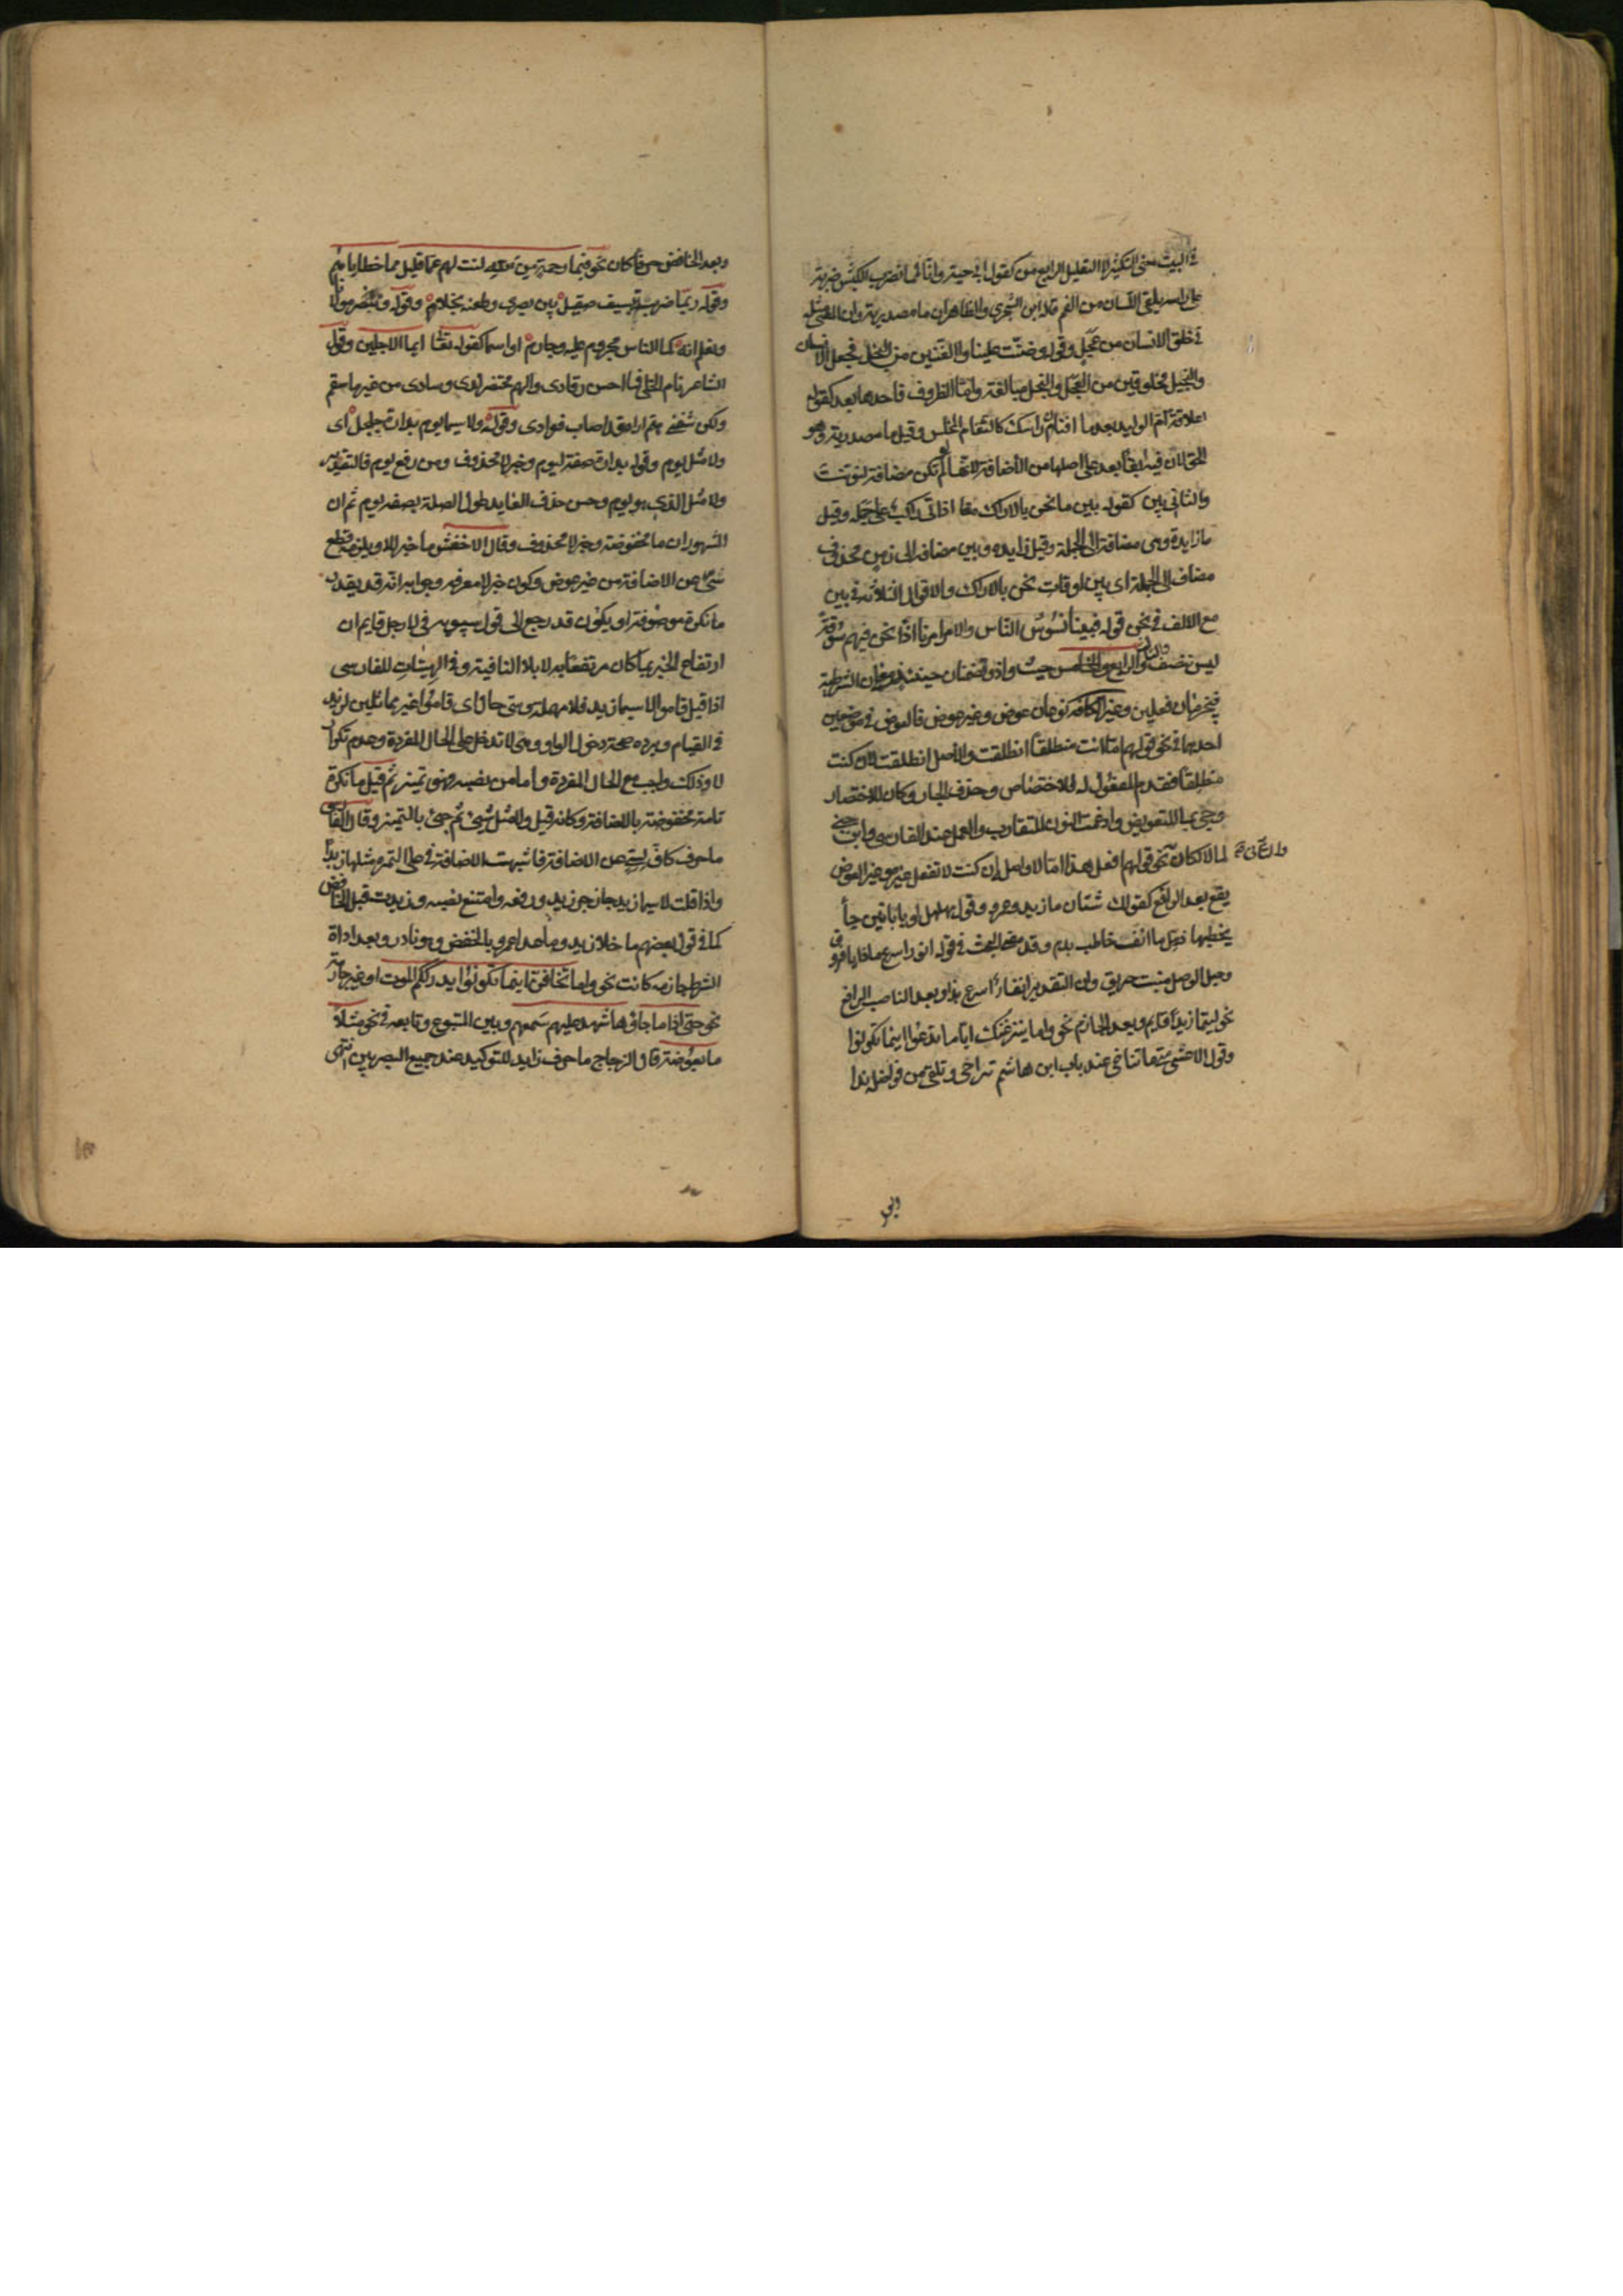 في البيت معنى التكثير لا التقليل الرابع من كقول ابي حية وانا لمما نضرب الكبش ضربة
على راسه يلقي اللسان من الفم قاله ابن الشجري والظاهر ان ما مصدرية وان المعنى مثله
في خلق الانسان من عجل وقوله وضنت علينا والضنين من البخل فجعل الانسان
والبخيل مخلوقين من العجل والبخل مبالغة واما الظروف فاحدها بعد كقوله
اعلاقة ام الوليد بعد ما افنان راسك كالثغام المخلس وقيل ما مصدرية وهو
الحق لان فيه ابقا بعد على اصلها من الاضافة لانها لو لم تكن مضافة لنونت
والثاني بين كقوله بين ما نحن بالاراك معا اذ اتى راكب على جمله وقيل
ما زايدة وهي مضافة الى الجملة وقيل زايدة وبين مضافة الى زمن محذوف
مضاف الى الجملة اى بين اوقات نحن بالاراك والاقوال الثلاثة في بين
مع الالف في نحو قوله فبينا نسوس الناس والامر امرنا اذا نحن فيهم سوقة
ليس ننصف والثالث والرابع والخامس حيث واذ وتضمنان حينئذ معنى ان الشرطية
فيجزمان فعلين وغير الكافة نوعان عوض وغير عوض فالعوض في موضعين
احدهما في نحو قولهم اما انت منطلقا انطلقت والاصل انطلقت لان كنت
منطلقا فقدم المفعول له للاختصاص وحذف الجار وكان للاختصار
وجئ بما للتعويض وادغمت النون للتقارب والعمل عند الفارسى وابن جني
لما لا لكان والثاني نحو قولهم افعل هذا اما لا واصله ان كنت لا تفعل غيره وغير العوض
يقع بعد الرافع كقولك شتان ما زيد وعمرو وقول مهلهل لو بابانين جأ
يخطبها ضرج ما انف خاطب بدم وقد مضى البحث في قوله انورا سرع ماذا يا فروق
وحبل الوصل منتكث حذيق وان التقدير انفارا اسرع هذا وبعد الناصب الرافع
نحو ليتما زيدا قايم وبعد الجازم نحو واما ينزغنك اياما تدعوا اينما تكونوا
وقول الاعشى متى ما تناخي عند باب ابن هاشم تراحى وتلقى من فواضله ندا
وبعد
وبعد الخافض حرفا كان نحو فبما رحمة من الله لنت لهم عما قليل مما خطاياهم
وقوله ربما ضربة بسيف صقيل بين بصرى وطعنة نجلاء وقوله وننصر مولانا
ونعلم انه كما الناس مجروم عليه وجارم او اسما كقوله تعالى ايما الاجلين وقول
الشاعر نام الخلي فما احسن رقادى والهم محتضر لدى وسادى من غير ما سقم
ولكن شفني هم اراه قد اصاب فوادى وقوله ولا سيما يوم بدارة جلجل اى
ولا مثل يوم وقوله بدارة صفة ليوم وخبر لا محذوف ومن رفع يوم فالتقدير
ولا مثل الذي هو يوم وحسن حذف العايد طول الصلة بصفة يوم ثم ان
المشهور ان ما مخفوضة وخبر لا محذوف وقال الاخفش ما خبر للا ويلزمه قطع
سى عن الاضافة من غير عوض وكون خبر لا معرفة وجوابه انه قد يقدر
ما نكرة موصوفة او يكون قد رجع الى قول سيبويه في لا رجل قايم ان
ارتفاع الخبر بما كان مرتفعا به لا بلا النافية وفي الهيتيات للفارسى
اذا قيل قاموا لا سيما زيد فلا مهملة وسى حال اى قاموا غير مماثلين لزيد
في القيام ويرده صحة دخول الواو وهي لا تدخل على الحال المفردة وعدم تكرار
لا وذلك واجب مع الحال المفردة واما من نصبه فهو تمييز ثم قيل ما نكرة
تامة مخفوضة بالاضافة وكانه قيل ولا مثل شئ ثم جئ بالتمييز وقال الفارسى
ما حرف كاف لسى عن الاضافة فاشبهت الاضافة في على التمرة مثلها زبدا
واذا قلت لا سيما زيد جاز جر زيد ورفعه وامتنع نصبه وزيدت قبل الخافض
كما في قول بعضهم ما خلا زيد وما عدا عمرو بالخفض وهو نادر وبعد اداة
الشرط جازمة كانت نحو واما تخافن اينما تكونوا يدرككم الموت او غير جازمة
نحو حتى اذا ما جاؤها شهد عليهم سمعهم وبين المتبوع وتابعه في نحو مثلا
ما بعوضة قال الزجاج ما حرف زايد للتوكيد عند جميع البصريين انتهى